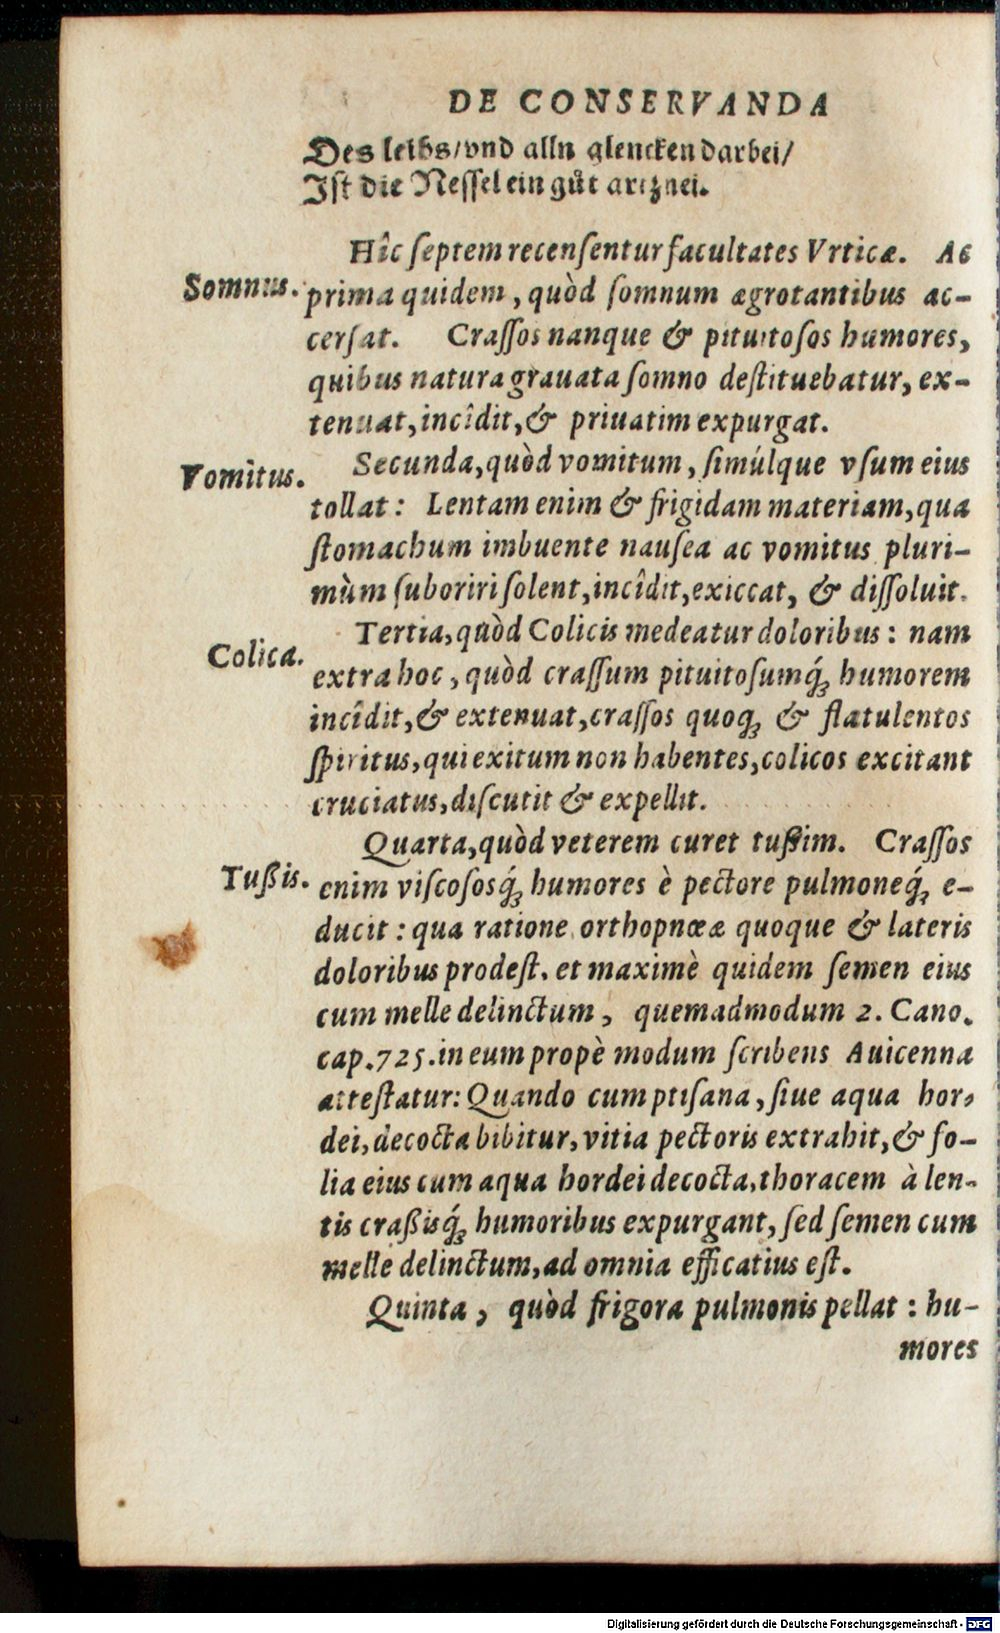 DE CONSERVANDA
Des leibs/vnd alln glencken darbei/
Ist die Nessel ein gůt artznei.
Hîc ſeptem recenſentur facultates Vrticæ. Ac
Somnus.
prima quidem, quòd ſomnum ægrotantibus ac-
cerſat. Craſſos nanque & pituitoſos humores,
quibus natura grauata ſomno deſtituebatur, ex-
tenuat, incîdit, & priuatim expurgat.
Vomitus.
Secunda, quòd vomitum, ſimúlque vſum eius
tollat: Lentam enim & frigidam materiam, qua
ſtomachum imbuente nauſea ac vomitus pluri-
mùm ſuboriri ſolent, incîdit, exiccat, & diſſoluit.
Colica.
Tertia, quòd Colicis medeatur doloribus: nam
extra hoc, quòd craſſum pituitoſumq́ꝫ humorem
incîdit, & extenuat, craſſos quoqꝫ & flatulentos
ſpiritus, qui exitum non habentes, colicos excitant
cruciatus, diſcutit & expellit.
Quarta, quòd veterem curet tuſſim. Craſſos
Tußis.
enim viſcoſosq́ꝫ humores è pectore pulmoneq́ꝫ e-
ducit: qua ratione orthopnœæ quoque & lateris
doloribus prodeſt. et maximè quidem ſemen eius
cum melle delinctum, quemadmodum 2. Cano.
cap. 725. in eum propè modum ſcribens Auicenna
atteſtatur: Quando cum ptiſana, ſiue aqua hor-
dei, decocta bibitur, vitia pectoris extrahit, & fo-
lia eius cum aqua hordei decocta, thoracem à len-
tis craßisq́ꝫ humoribus expurgant, ſed ſemen cum
melle delinctum, ad omnia efficatius eſt.
Quinta, quòd frigora pulmonis pellat: hu-
mores
Digitalisierung gefördert durch die Deutsche Forschungsgemeinschaft - DFG